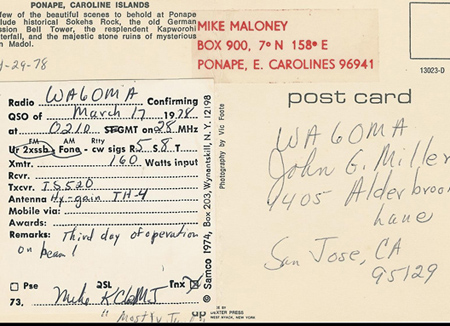 PONAPE, CAROLINE ISLANDS
few of the beautiful scenes to behold at Ponape
lude historical Sokehs Rock, the old German
ssion Bell Tower, the resplendent Kapworohi
terfall, and the majestic stone ruins of mysterious
n Madol.
-29-78
MIKE MALONEY
BOX 900, 7° N 158° E
PONAPE, E. CAROLINES 96941
13023-D
post card
Radio WA6OMA Confirming
QSO of March 17 1978
at 0210 GMT on 28 MHz
FM AM Rtty
Ur 2xssb Fone - cw sigs R 5 S 8 T
Xmtr. 160 Watts input
Rcvr.
Txcvr. TS520
Antenna Hy-gain TH-4
Mobile via:
Awards:
Remarks: Third day of operation
on beam!
Pse QSL Tnx
73, Mike
Samco 1974, Box 203, Wynantskill, N.Y. 12198
Photography by Vic Foote
WA6OMA
John G. Miller
Alderbrook
Lane
San Jose, CA
95129
BY
DEXTER PRESS
WEST NYACK, NEW YORK
Mostly